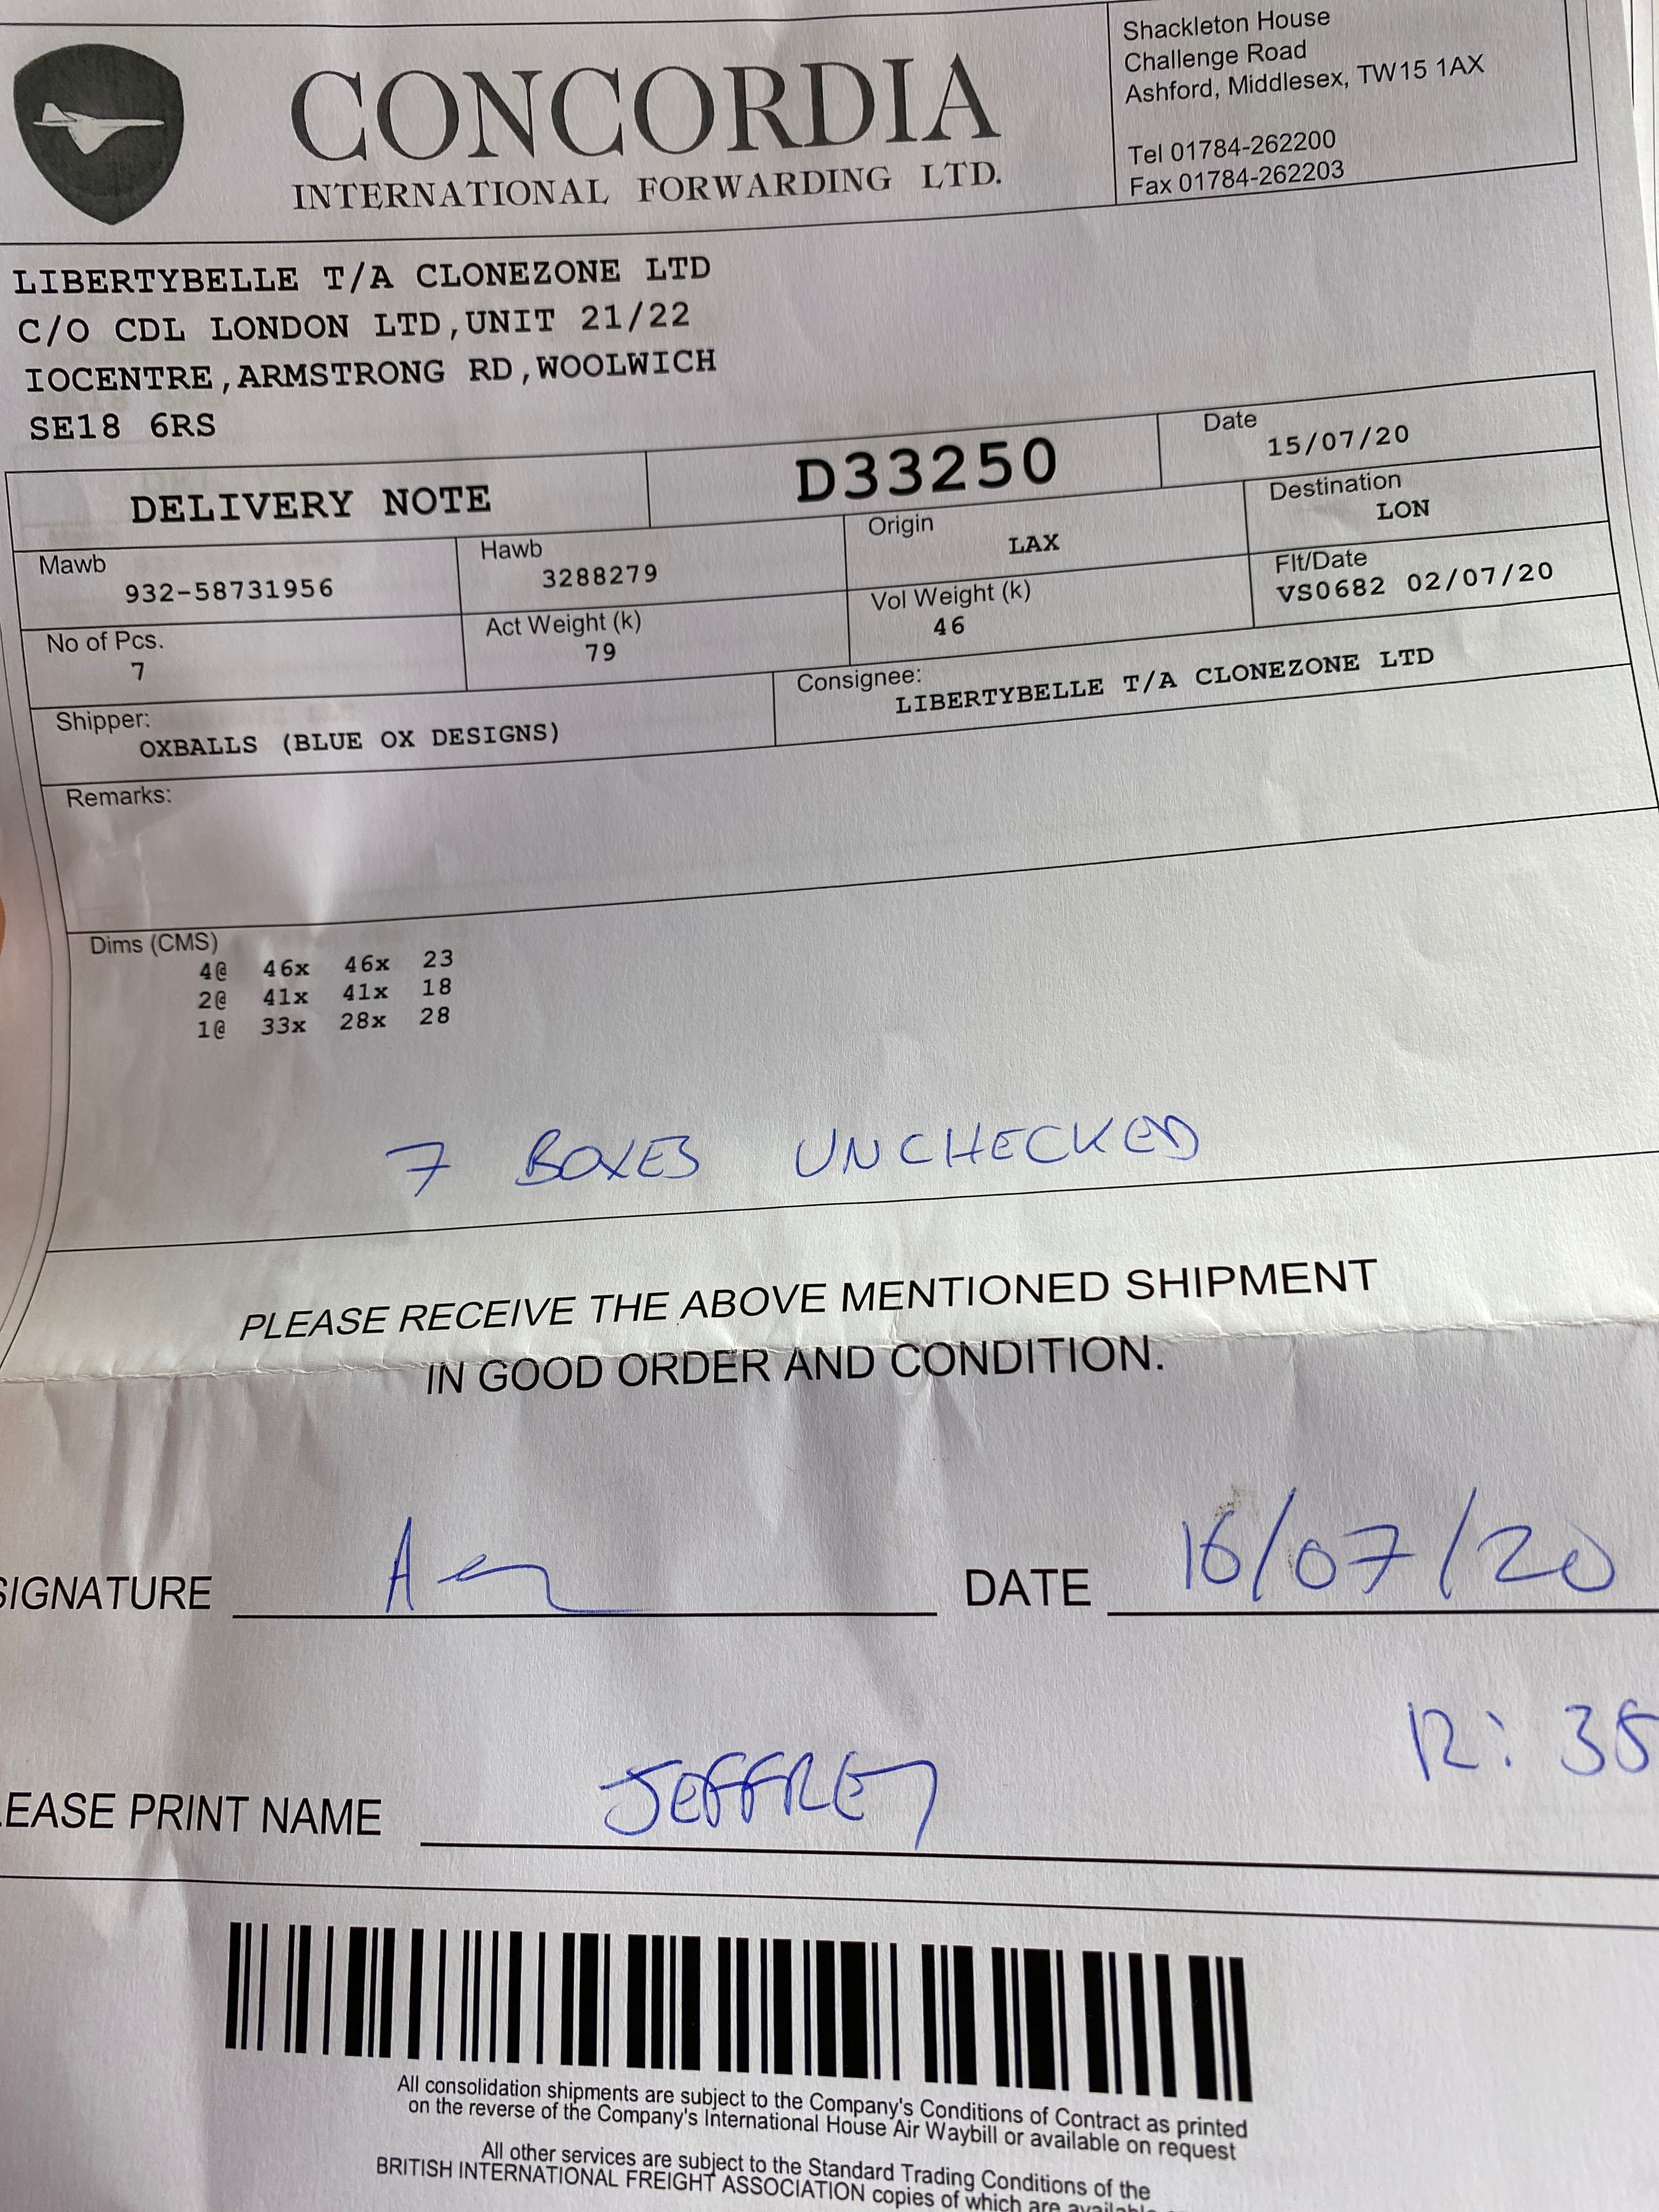 CONCORDIA
INTERNATIONAL FORWARDING LTD.
Shackleton House
Challenge Road
Ashford, Middlesex, TW15 1AX
Tel 01784-262200
Fax 01784-262203
LIBERTYBELLE T/A CLONEZONE LTD
C/O CDL LONDON LTD,UNIT 21/22
IOCENTRE,ARMSTRONG RD,WOOLWICH
SE18 6RS
DELIVERY NOTE
D33250
Date
15/07/20
Mawb
932-58731956
Hawb
3288279
Origin
LAX
Destination
LON
No of Pcs.
7
Act Weight (k)
79
Vol Weight (k)
46
Flt/Date
VS0682 02/07/20
Shipper:
OXBALLS (BLUE OX DESIGNS)
Consignee:
LIBERTYBELLE T/A CLONEZONE LTD
Remarks:
Dims (CMS)
4@ 46x 46x 23
2@ 41x 41x 18
1@ 33x 28x 28
7 BOXES UNCHECKED
PLEASE RECEIVE THE ABOVE MENTIONED SHIPMENT
IN GOOD ORDER AND CONDITION.
SIGNATURE
DATE 16/07/20
12:38
EASE PRINT NAME JEFFREY
All consolidation shipments are subject to the Company's Conditions of Contract as printed
on the reverse of the Company's International House Air Waybill or available on request
All other services are subject to the Standard Trading Conditions of the
BRITISH INTERNATIONAL FREIGHT ASSOCIATION copies of which are available